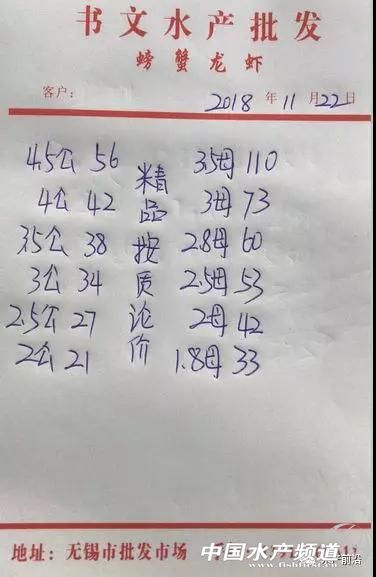 书文水产批发
螃蟹龙虾
客户:
2018 年 11 月 22 日
4.5公 56 精 3.5母 110
4公 42 品 3母 73
3.5公 38 按 2.8母 60
3公 34 质 2.5母 53
2.5公 27 论 2母 42
2公 21 价 1.8母 33
地址: 无锡市批发市场
中国水产频道
www.fishfirst.cn